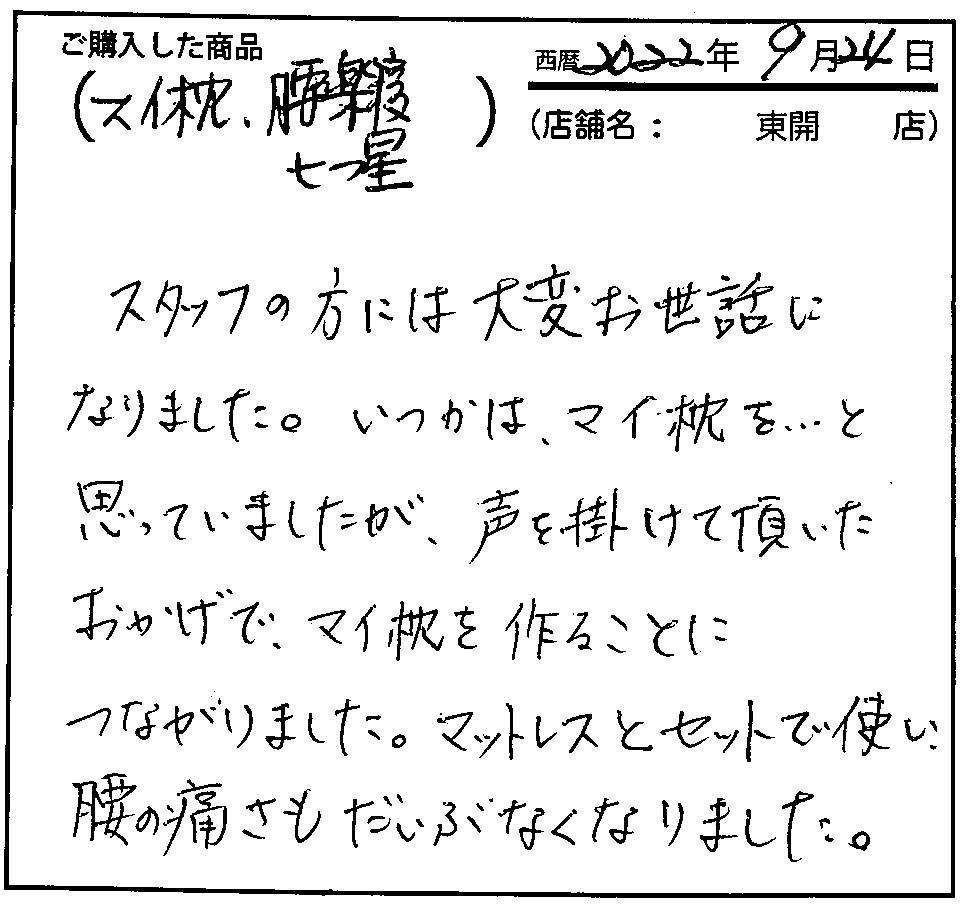 ご購入した商品
西暦2022年 9月24日
(マイ枕、腰楽寝
七つ星)
(店舗名： 東開 店)
スタッフの方には大変お世話に
なりました。いつかは、マイ枕を…と
思っていましたが、声を掛けて頂いた
おかげで、マイ枕を作ることに
つながりました。マットレスとセットで使い
腰の痛さもだいぶなくなりました。